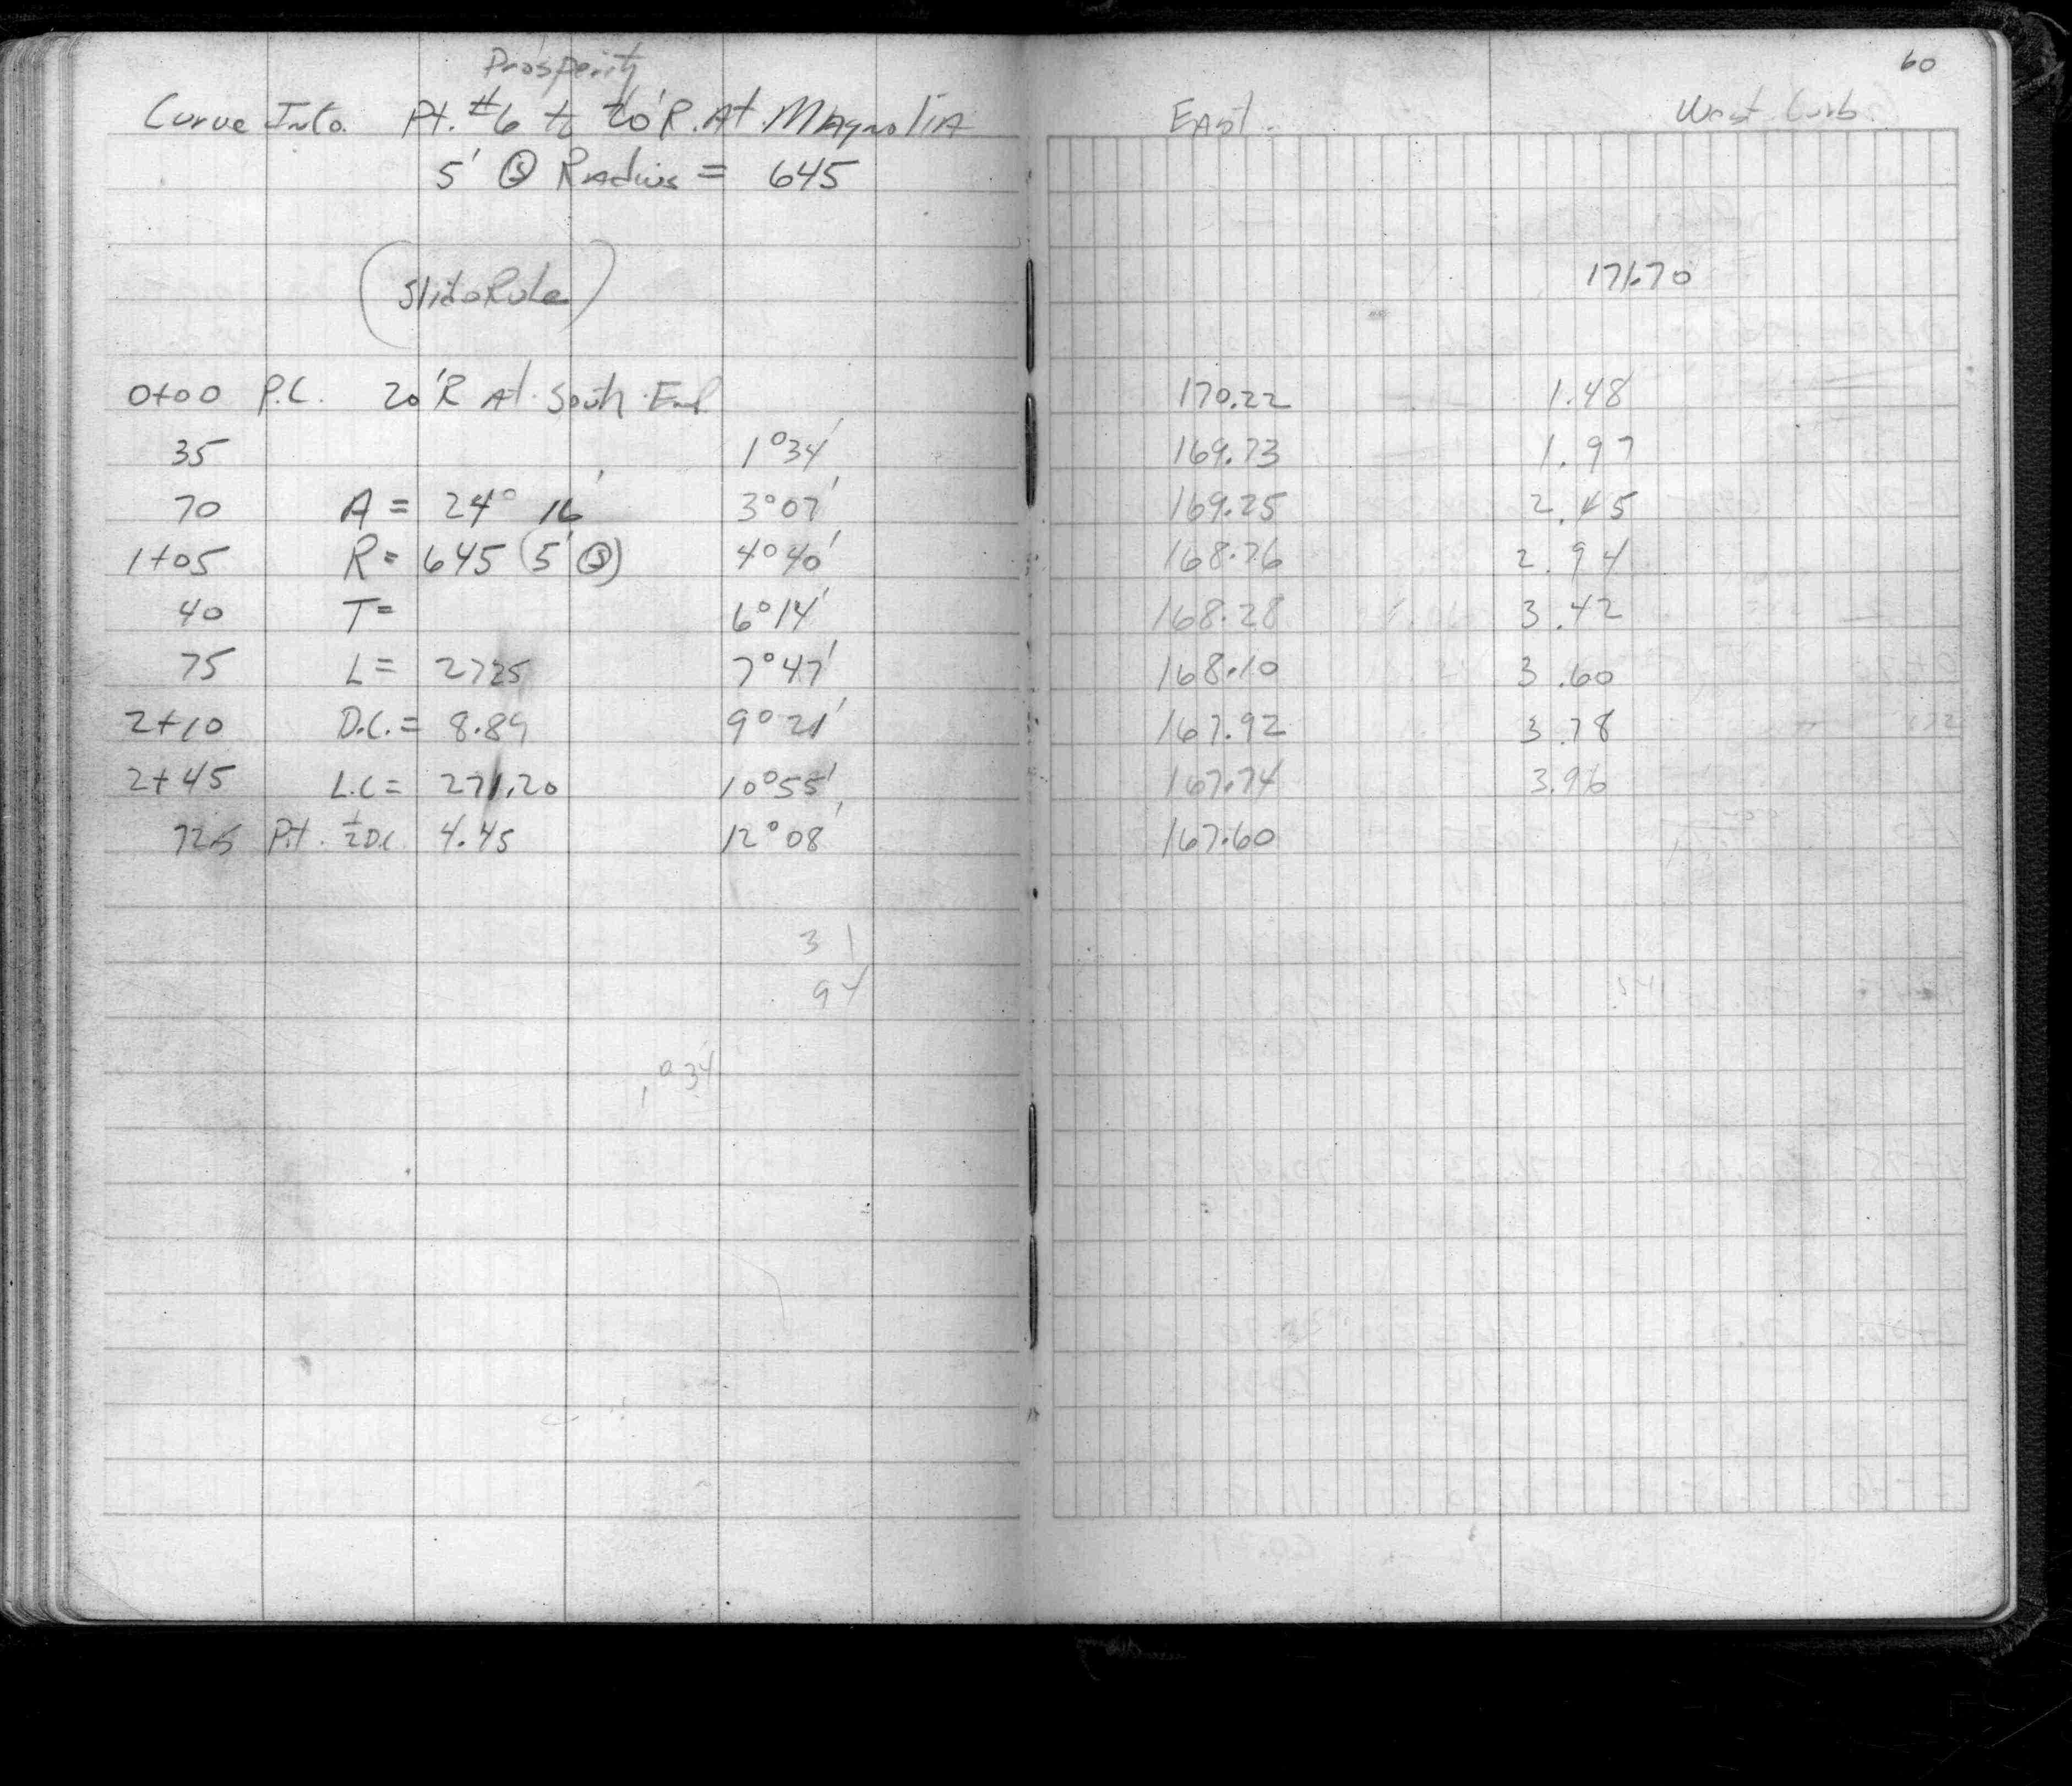 Prosperity
Curve Info. Pt. #6 to 20'R. At. MAgnoliA
5' Ⓢ Radius = 645
(Slide Rule)
0+00 P.C. 20'R At. South End
35 1°34'
70 A = 24° 16' 3°07'
1+05 R = 645 (5' Ⓢ) 4°40'
40 T = 6°14'
75 L = 2725 7°47'
2+10 D.C. = 8.89 9°21'
2+45 L.C = 271.20 10°55'
72.5 Pt. ½ D.C. 4.45 12°08'
31
94
1°34'
60
EAst. West Curb.
171.70
170.22 1.48
169.73 1.97
169.25 2.45
168.76 2.94
168.28 3.42
168.10 3.60
167.92 3.78
167.74 3.96
167.60